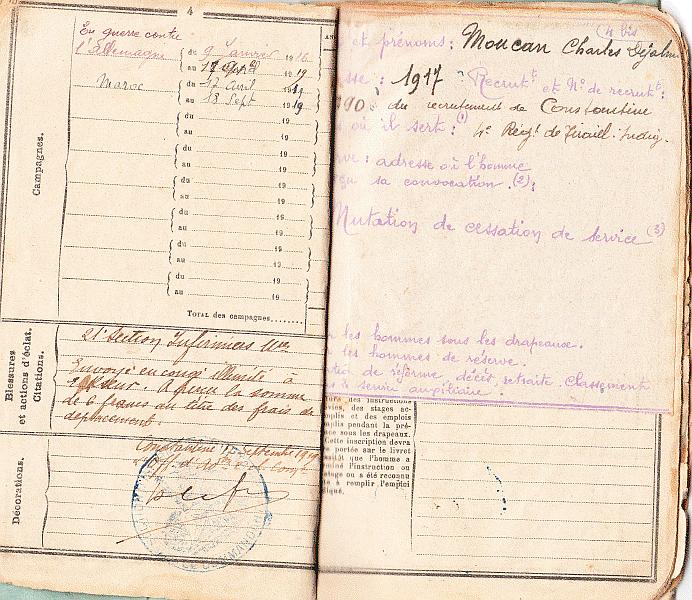 4
Campagnes.
En guerre contre
l'Allemagne
du 9 Janvier 1916
au 19
Maroc
du 17 Avril 1919
au 18 Sept 1919
du 19
au 19
du 19
au 19
du 19
au 19
du 19
au 19
du 19
au 19
du 19
au 19
TOTAL des campagnes........
Blessures
et actions d'éclat.
Citations.
21e Section Infirmiers
Envoyé en congé illimité à
A perçu la somme
de 6 francs au titre des frais de
déplacement.
Décorations.
Constantine Septembre
(4 bis
et prénoms: Moucan Charles Déjalm
sse: 1917 Recrutt et No de recrutt:
du recrutement de Constantine
où il sert: (1) 4e Régt de Tiraill. Indig.
rve: adresse où l'homme
sa convocation. (2):
Mutation de cessation de service (3)
les hommes sous les drapeaux.
les hommes de réserve.
de réforme, décès, retraite, classement
service auxiliaire.
des instructions
des stages ac-
mplis et des emplois
mplis pendant la pré-
ce sous les drapeaux.
Cette inscription devra
e portée sur le livret
que l'homme a
miné l'instruction ou
stage ou a été reconnu
e à remplir l'emploi
diqué.